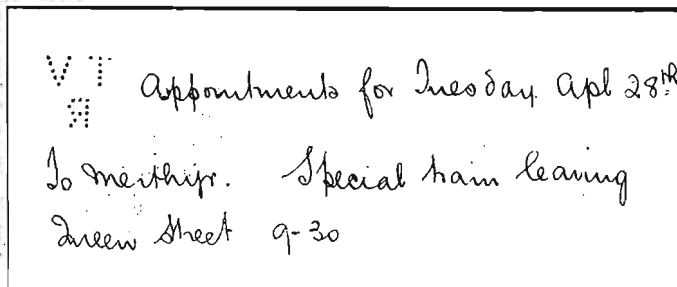 V T
R
Appointments for Tuesday Apl 28th
To Merthyr. Special train leaving
Queen Street 9-30